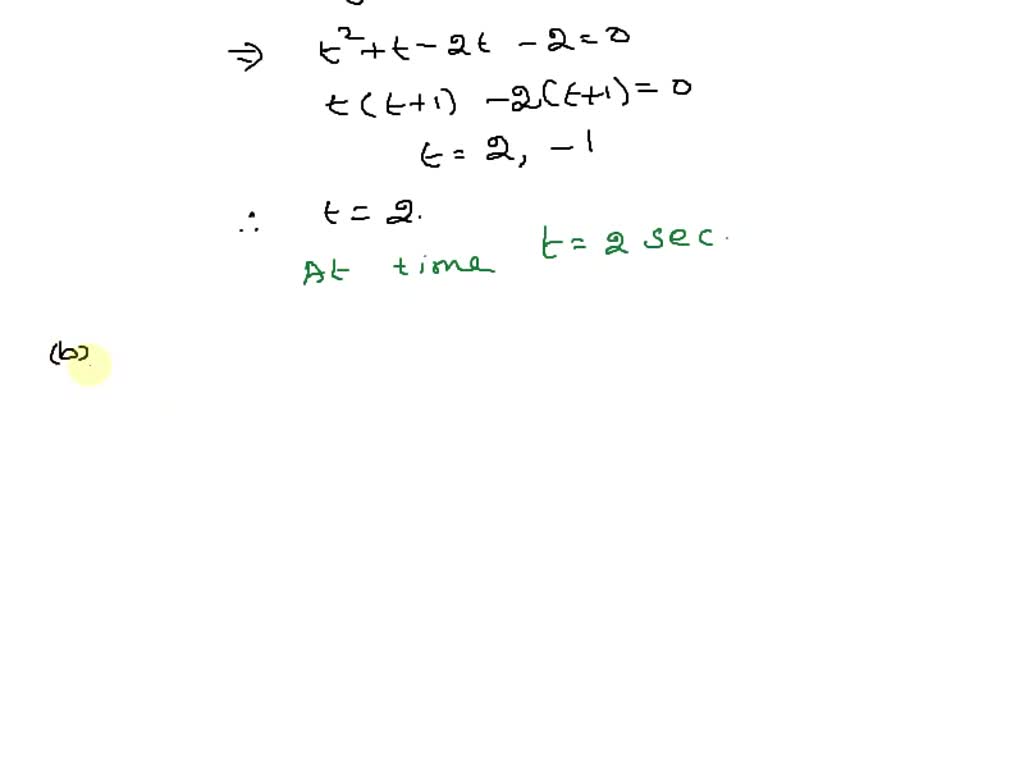 ⇒ t²+t-2t-2=0
t(t+1) -2(t+1)=0
t= 2, -1
∴ t=2.
At time t=2 sec.
(b)